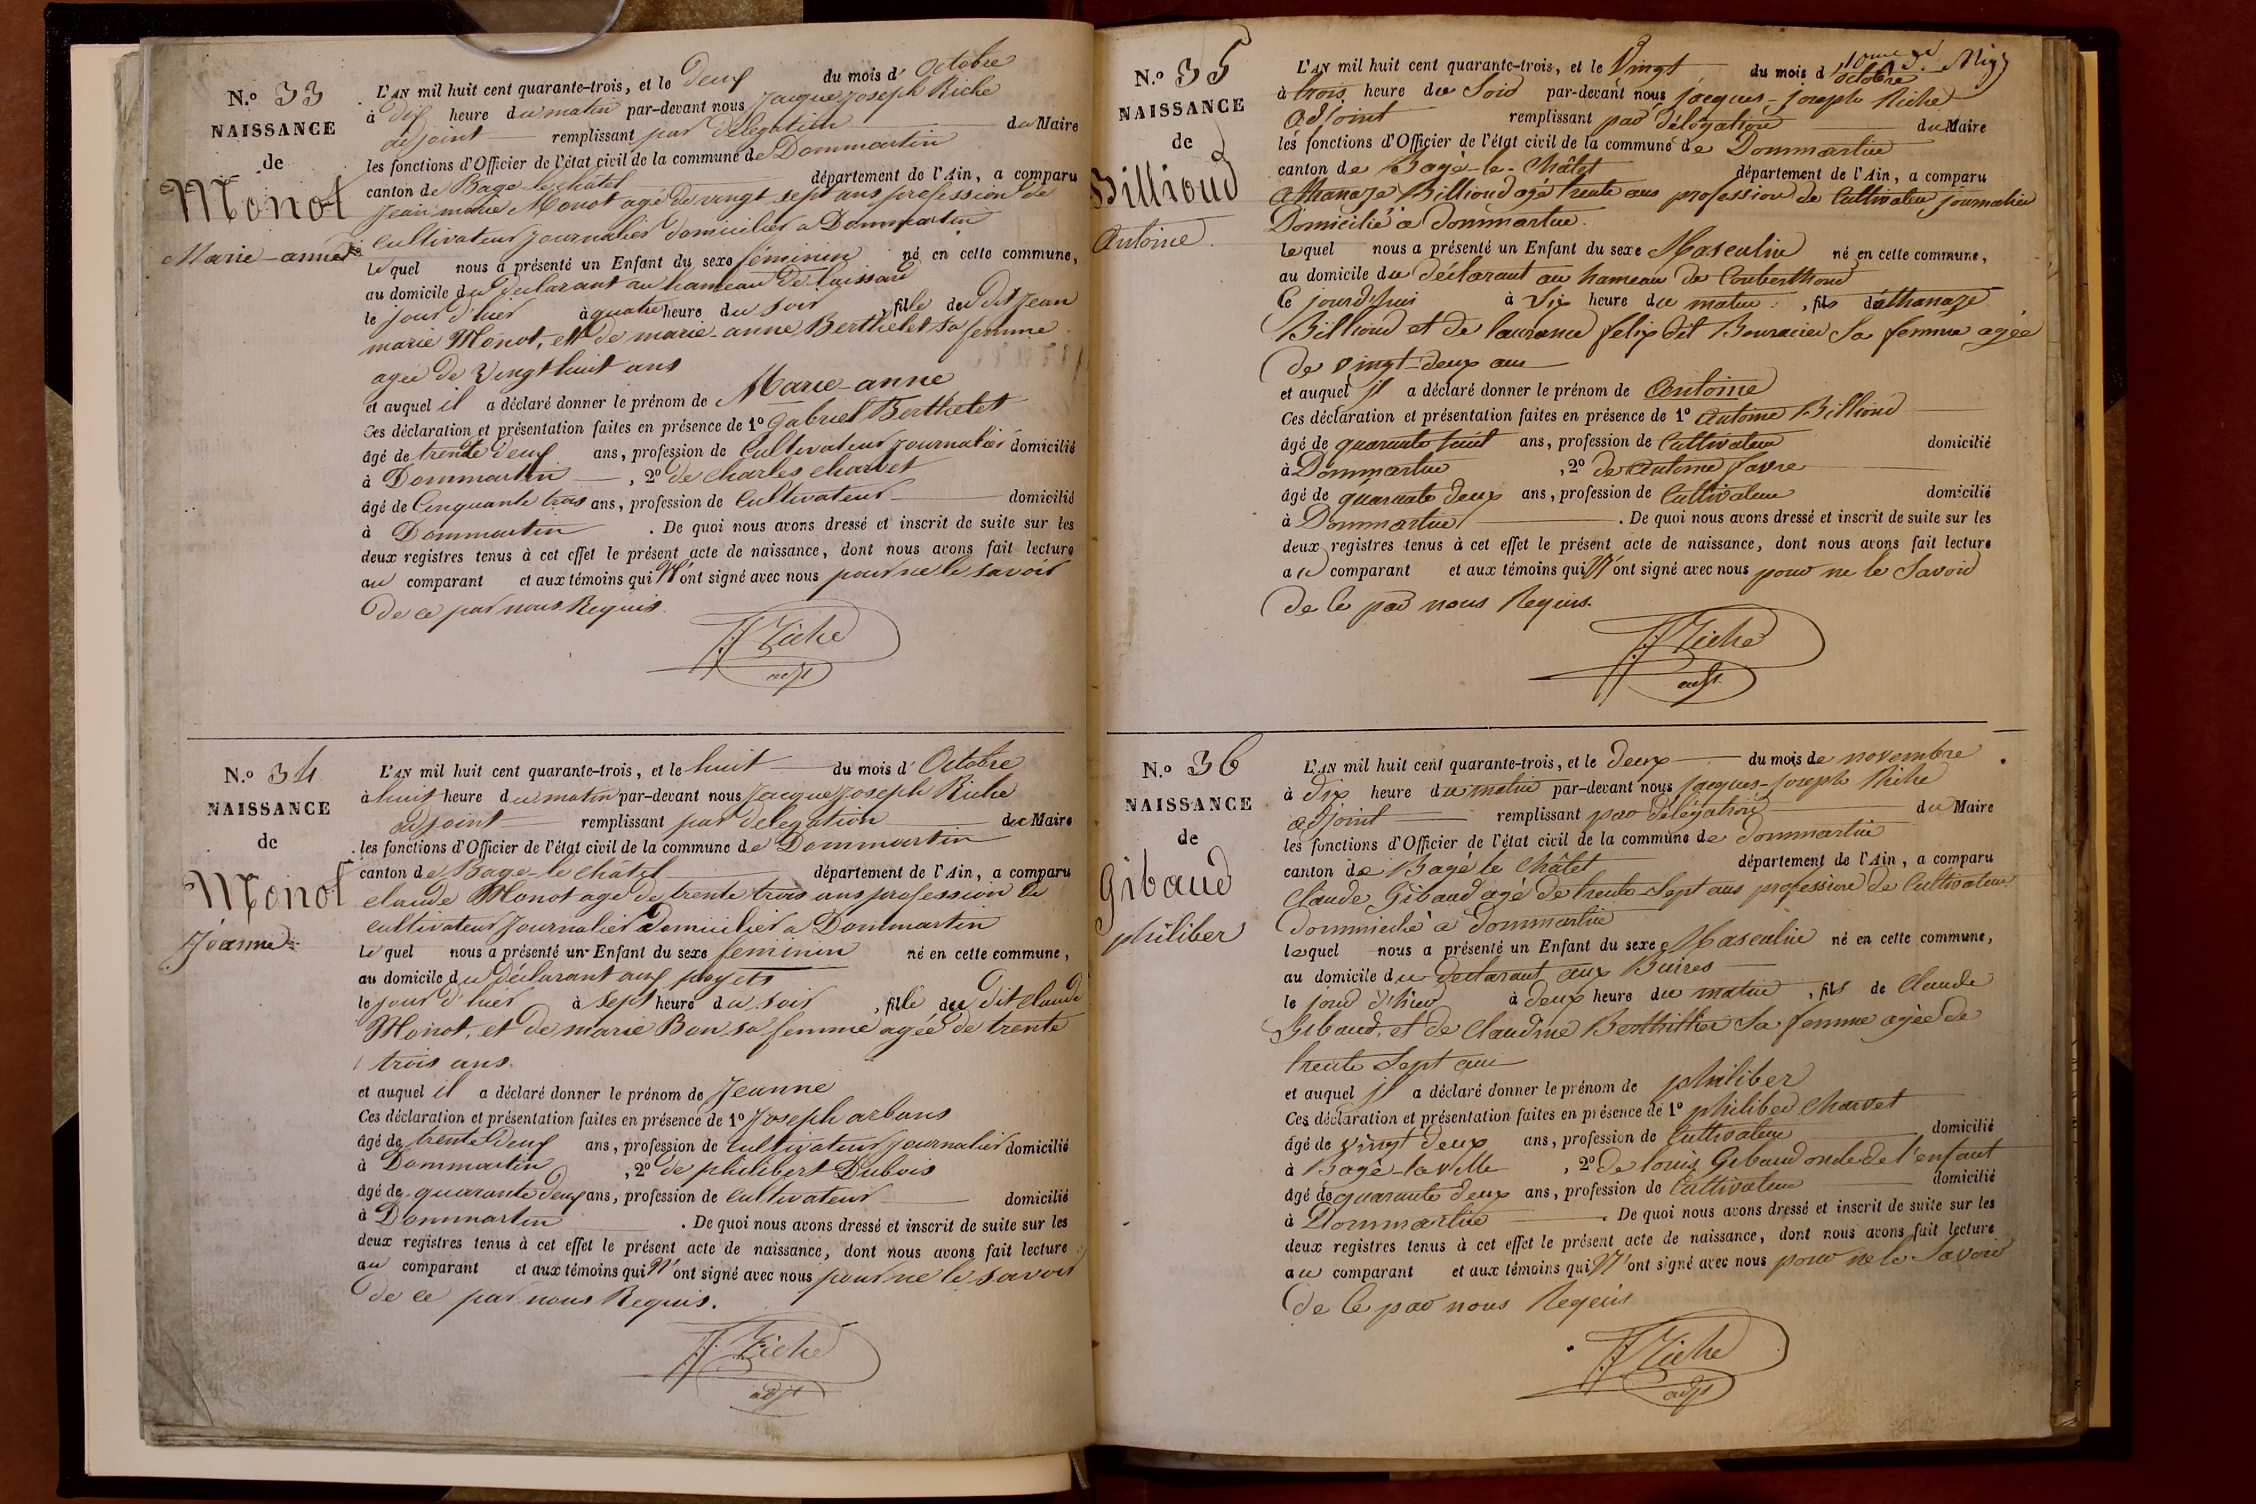 N.o 33
NAISSANCE
de
Monot
Marie-anne
L'AN mil huit cent quarante-trois, et le Deux du mois d' Octobre
à dix heure du matin par-devant nous Jacque Joseph Riche
adjoint remplissant par délégation du Maire
les fonctions d'Officier de l'état civil de la commune de Dommartin
canton de Bage-le-châtel département de l'Ain, a comparu
Jean marie Monot agé de vingt sept ans profession de
Cultivateur journalier domicilier a Dommartin
le quel nous a présenté un Enfant du sexe féminin né en cette commune,
au domicile du declarant au hameau de
le jour d'hier à quatre heure du soir, fille du dit Jean
marie Monot, et de marie-anne Berthelet sa femme
agée de Vingt huit ans
et auquel il a déclaré donner le prénom de Marie-anne
Ces déclaration et présentation faites en présence de 1o Gabriel Berthelet
âgé de trente deux ans, profession de Cultivateur journalier domicilié
à Dommartin, 2o de Charles Charvet
âgé de Cinquante trois ans, profession de Cultivateur domicilié
à Dommartin. De quoi nous avons dressé et inscrit de suite sur les
deux registres tenus à cet effet le présent acte de naissance, dont nous avons fait lecture
au comparant et aux témoins qui N'ont signé avec nous pour ne le savoir
De ce par nous Requis.
JJ Riche
adjt
N.o 34
NAISSANCE
de
Monot
Jeanne
L'AN mil huit cent quarante-trois, et le huit du mois d' Octobre
à huit heure du matin par-devant nous Jacque Joseph Riche
adjoint remplissant par delegation du Maire
les fonctions d'Officier de l'état civil de la commune de Dommartin
canton de Bage-le châtel département de l'Ain, a comparu
claude Monot agé de trente trois ans profession de
cultivateur journalier Domicilier a Dommartin
le quel nous a présenté un Enfant du sexe feminin né en cette commune,
au domicile du déclarant aux poyets
le jour d'hier à sept heure du soir, fille du dit claude
Monot, et de marie Bon sa femme agée de trente
trois ans.
et auquel il a déclaré donner le prénom de Jeanne
Ces déclaration et présentation faites en présence de 1o Joseph arbans
âgé de trente Deux ans, profession de cultivateur journalier domicilié
à Dommartin, 2o de philibert Dubois
âgé de quarante deux ans, profession de Cultivateur domicilié
à Dommartin. De quoi nous avons dressé et inscrit de suite sur les
deux registres tenus à cet effet le présent acte de naissance, dont nous avons fait lecture
au comparant et aux témoins qui N'ont signé avec nous pour ne le savoir
De ce par nous Requis.
JJ Riche
adjt
N.o 35
NAISSANCE
de
Billioud
Antoine.
L'AN mil huit cent quarante-trois, et le Vingt du mois d'octobre
à trois heure du Soir par-devant nous jacques-joseph Riche
adjoint remplissant par délégation du Maire
les fonctions d'Officier de l'état civil de la commune de Dommartin
canton de Bagé-le-Châtel département de l'Ain, a comparu
athanaze Billioud agé trente ans profession de Cultivateur journalier
Domicilié a dommartin.
lequel nous a présenté un Enfant du sexe Masculin né en cette commune,
au domicile du déclarant au hameau de Couberthoud
le jourd'hui à Six heure du matin, fils d'athanaze
Billioud et de laurance felix dit Bouracier Sa femme agée
de vingt-deux ans
et auquel il a déclaré donner le prénom de Antoine
Ces déclaration et présentation faites en présence de 1o antoine Billioud
âgé de quarante huit ans, profession de Cultivateur domicilié
à Dommartin, 2o de antoine favre
âgé de quarante deux ans, profession de Cultivateur domicilié
à Dommartin. De quoi nous avons dressé et inscrit de suite sur les
deux registres tenus à cet effet le présent acte de naissance, dont nous avons fait lecture
au comparant et aux témoins qui N'ont signé avec nous pour ne le Savoir
de Ce par nous Requis.
JJ Riche
adjt
N.o 36
NAISSANCE
de
Gibaud
philiber
L'AN mil huit cent quarante-trois, et le deux du mois de novembre
à dix heure du matin par-devant nous jacques-joseph Riche
adjoint remplissant par délégation du Maire
les fonctions d'Officier de l'état civil de la commune de dommartin
canton de Bagé le Châtel département de l'Ain, a comparu
Claude Gibaud agé de trente Sept ans profession de Cultivateur
dommicilié a dommartin
lequel nous a présenté un Enfant du sexe Masculin né en cette commune,
au domicile du declarant aux Buires
le jour d'hier à deux heure du matin, fils de Claude
Gibaud, et de Claudine Berthillier Sa femme agée de
trente Sept ans
et auquel il a déclaré donner le prénom de philiber
Ces déclaration et présentation faites en présence de 1o philiber Charvet
âgé de vingt deux ans, profession de Cultivateur domicilié
à Bagé-la-Ville, 2o de louis Gibaud oncle de l'enfant
âgé de quarante deux ans, profession de Cultivateur domicilié
à Dommartin. De quoi nous avons dressé et inscrit de suite sur les
deux registres tenus à cet effet le présent acte de naissance, dont nous avons fait lecture
au comparant et aux témoins qui N'ont signé avec nous pour ne le Savoir
de Ce par nous Requis
JJ Riche
adjt